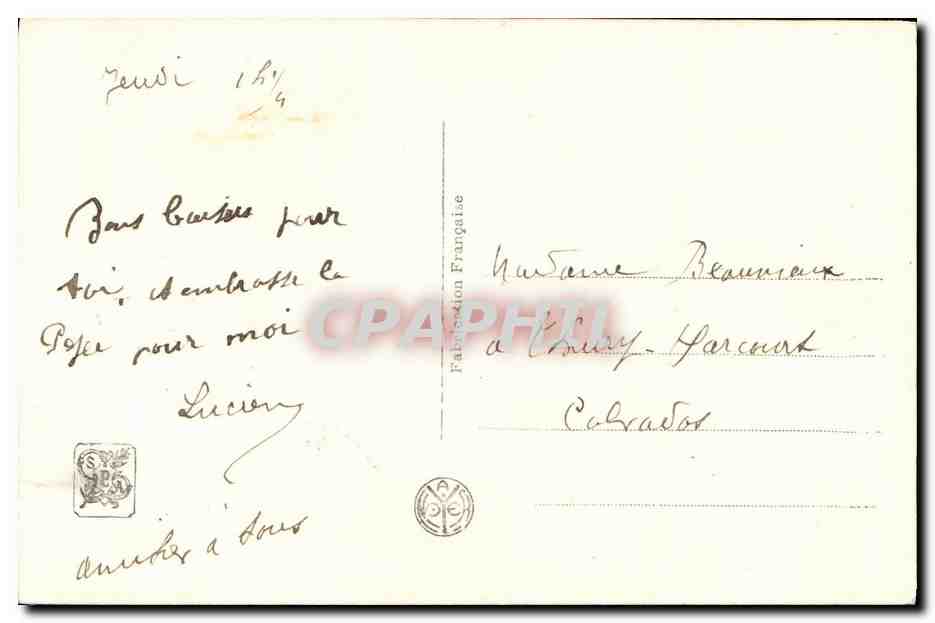 Jeudi
Bons baisers pour
toi, et embrasse la
pour moi
Lucien
amitiés à tous
Fabrication Française
Madame
à Thury-Harcourt
Calvados
CPAPHIL